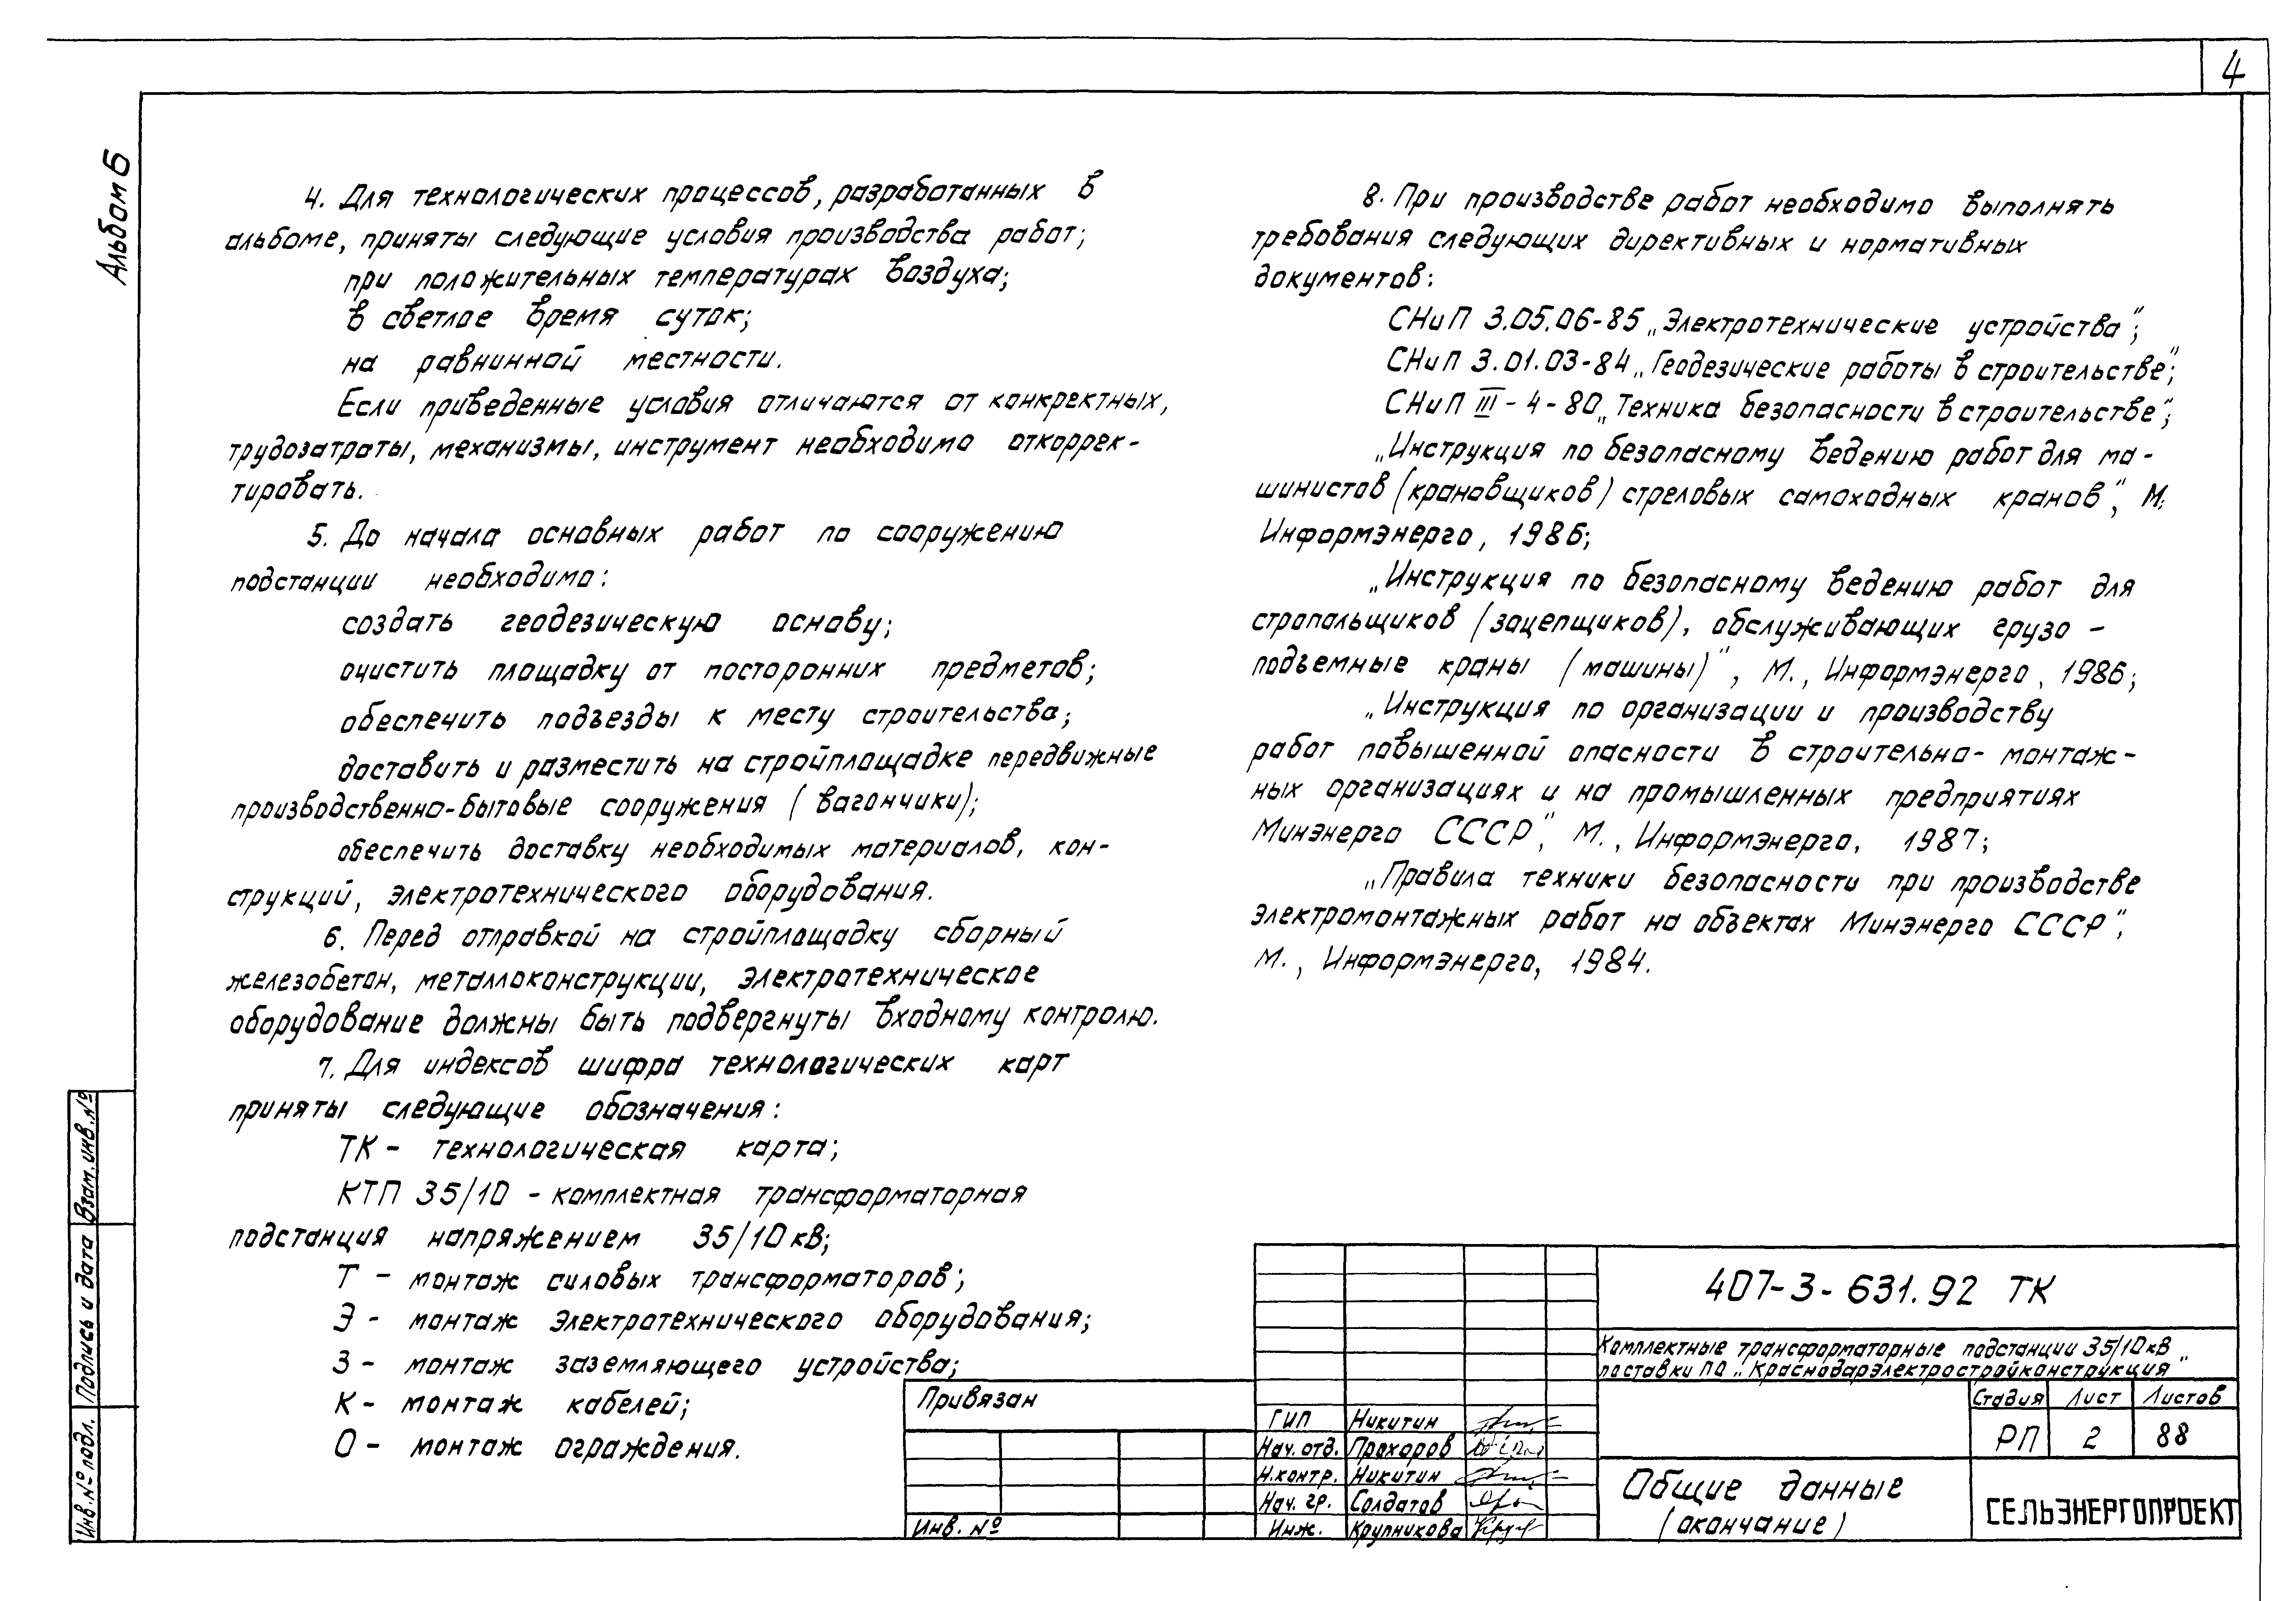 4
Альбом 6
4. Для технологических процессов, разработанных в
альбоме, приняты следующие условия производства работ;
при положительных температурах воздуха;
в светлое время суток;
на равнинной местности.
Если приведенные условия отличаются от конкректных,
трудозатраты, механизмы, инструмент необходимо откоррек-
тировать.
5. До начала основных работ по сооружению
подстанции необходимо:
создать геодезическую основу;
очистить площадку от посторонних предметов;
обеспечить подъезды к месту строительства;
доставить и разместить на стройплощадке передвижные
производственно-бытовые сооружения (вагончики);
обеспечить доставку необходимых материалов, кон-
струкций, электротехнического оборудования.
6. Перед отправкой на стройплощадку сборный
железобетон, металлоконструкции, электротехническое
оборудование должны быть подвергнуты входному контролю.
7. Для индексов шифра технологических карт
приняты следующие обозначения:
ТК - технологическая карта;
КТП 35/10 - комплектная трансформаторная
подстанция напряжением 35/10 кВ;
Т - монтаж силовых трансформаторов;
Э - монтаж электротехнического оборудования;
З - монтаж заземляющего устройства;
К - монтаж кабелей;
О - монтаж ограждения.
8. При производстве работ необходимо выполнять
требования следующих директивных и нормативных
документов:
СНиП 3.05.06-85 „Электротехнические устройства";
СНиП 3.01.03-84 „Геодезические работы в строительстве";
СНиП III-4-80 „Техника безопасности в строительстве";
„Инструкция по безопасному ведению работ для ма-
шинистов (крановщиков) стреловых самоходных кранов", М.
Информэнерго, 1986;
„Инструкция по безопасному ведению работ для
стропальщиков (зацепщиков), обслуживающих грузо-
подъемные краны (машины)", М., Информэнерго, 1986;
„Инструкция по организации и производству
работ повышенной опасности в строительно-монтаж-
ных организациях и на промышленных предприятиях
Минэнерго СССР", М., Информэнерго, 1987;
„Правила техники безопасности при производстве
электромонтажных работ на объектах Минэнерго СССР",
М., Информэнерго, 1984.
Инв. № подл. Подпись и дата Взам. инв. №
Привязан
Инв. №
ГИП Никитин
Нач. отд. Прохоров
Н. контр. Никитин
Нач. гр. Солдатов
Инж. Крупникова
407-3-631.92 ТК
Комплектные трансформаторные подстанции 35/10 кВ
поставки ПО „Краснодарэлектростройконструкция"
Стадия Лист Листов
РП 2 88
Общие данные
(окончание)
СЕЛЬЭНЕРГОПРОЕКТ